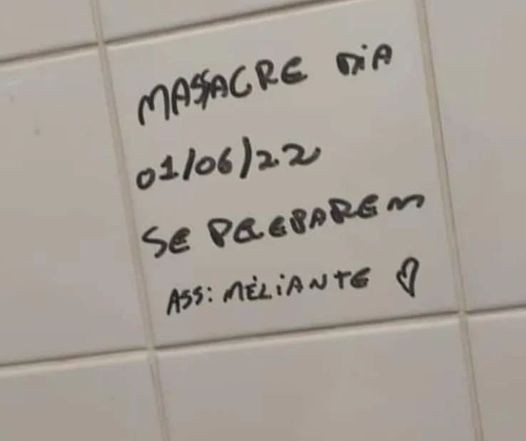 MASSACRE DIA
01/06/22
SE PREPAREM
ASS: MELIANTE